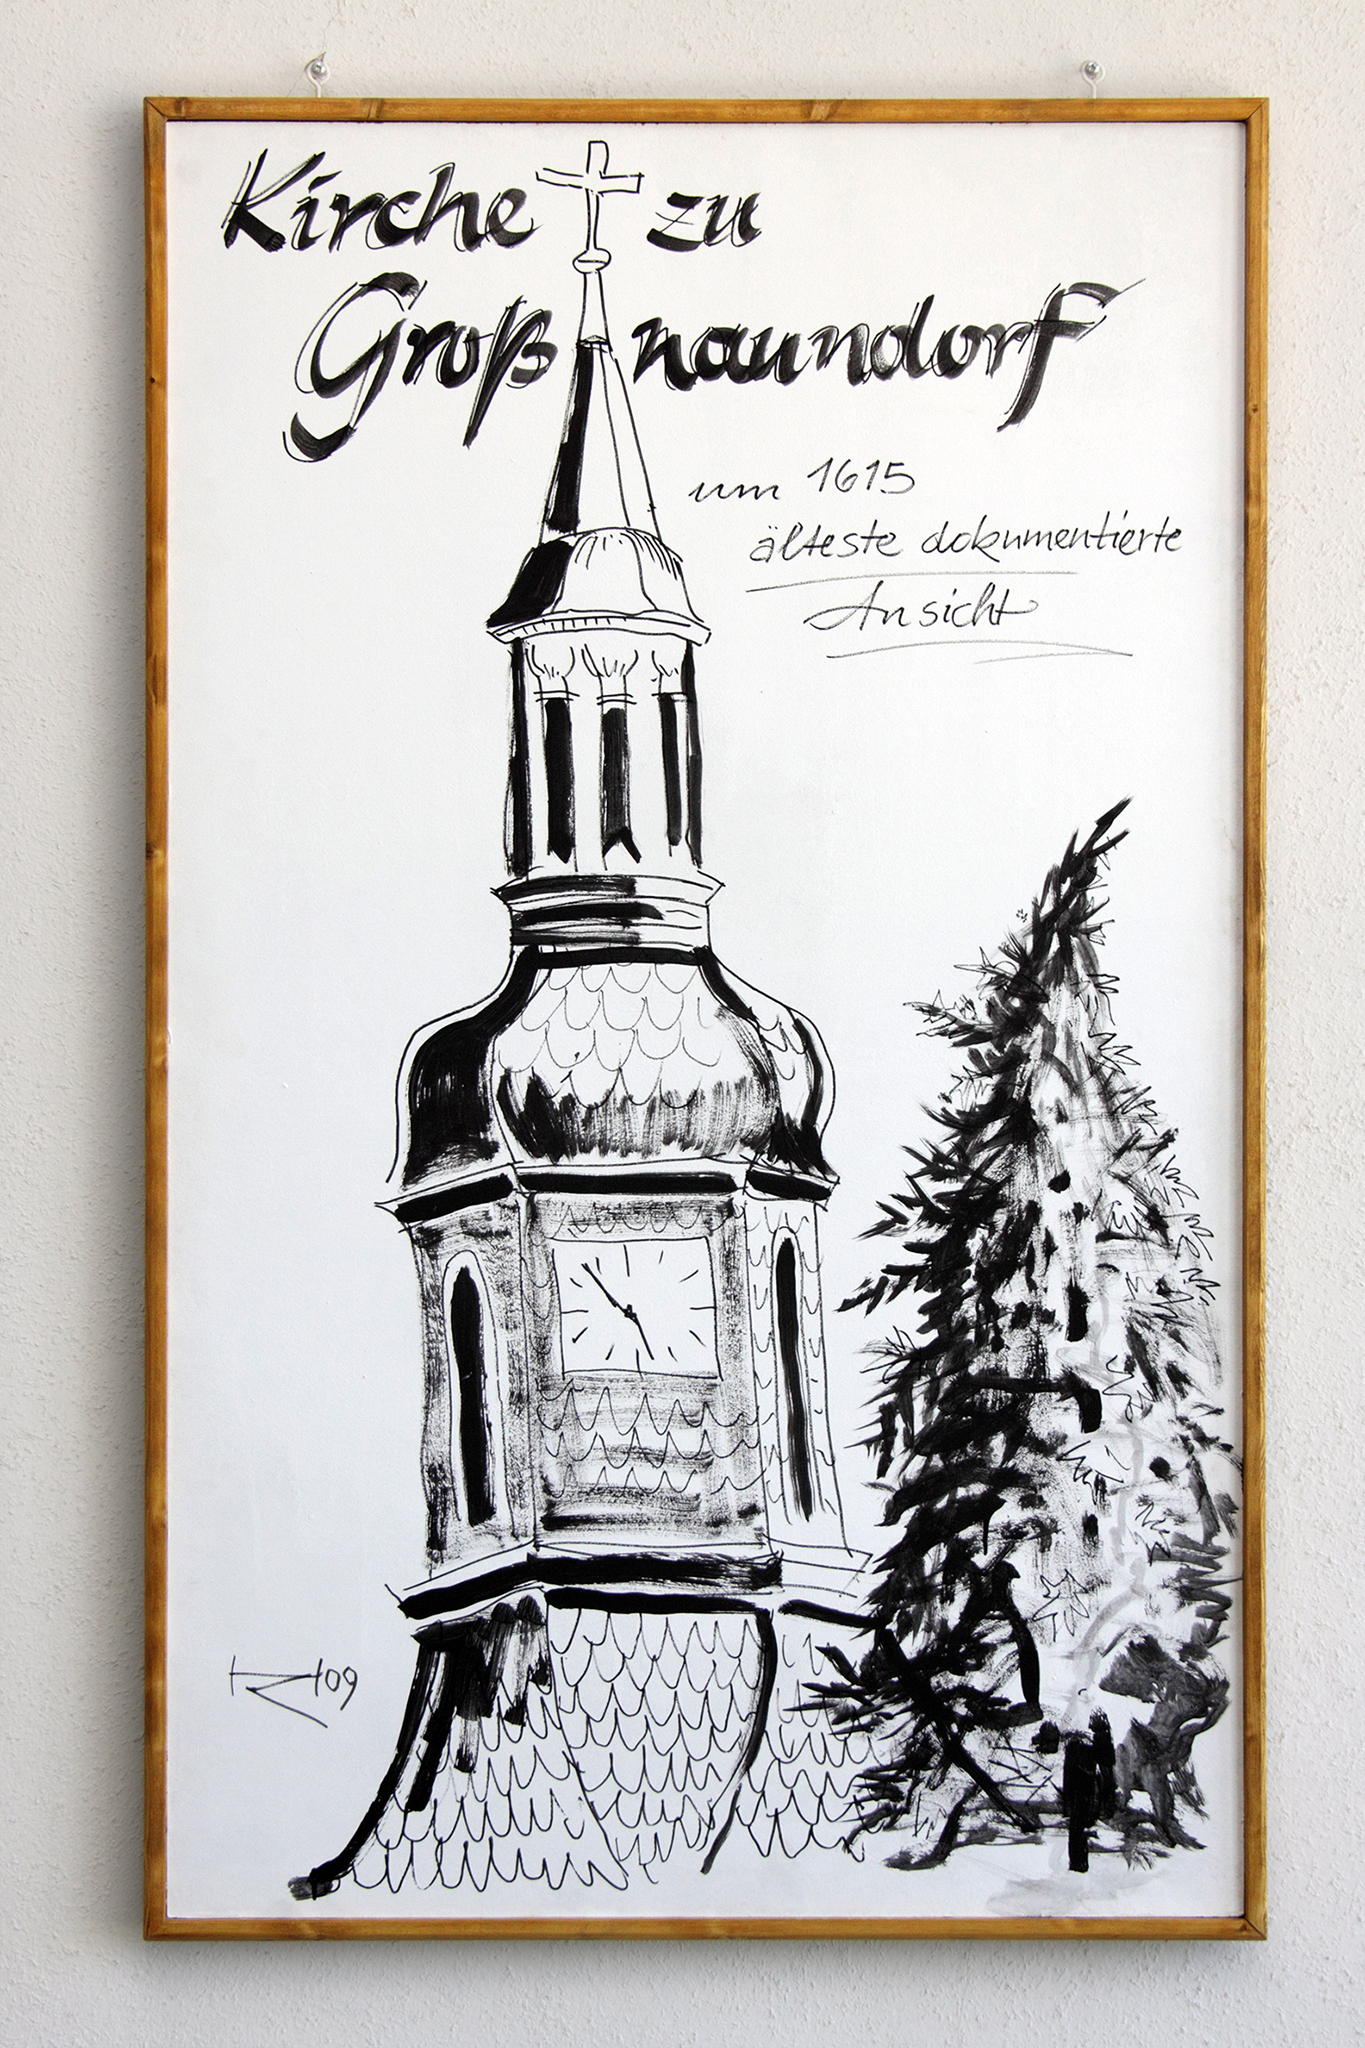 Kirche zu
Großnaundorf
um 1615
älteste dokumentierte
Ansicht
09